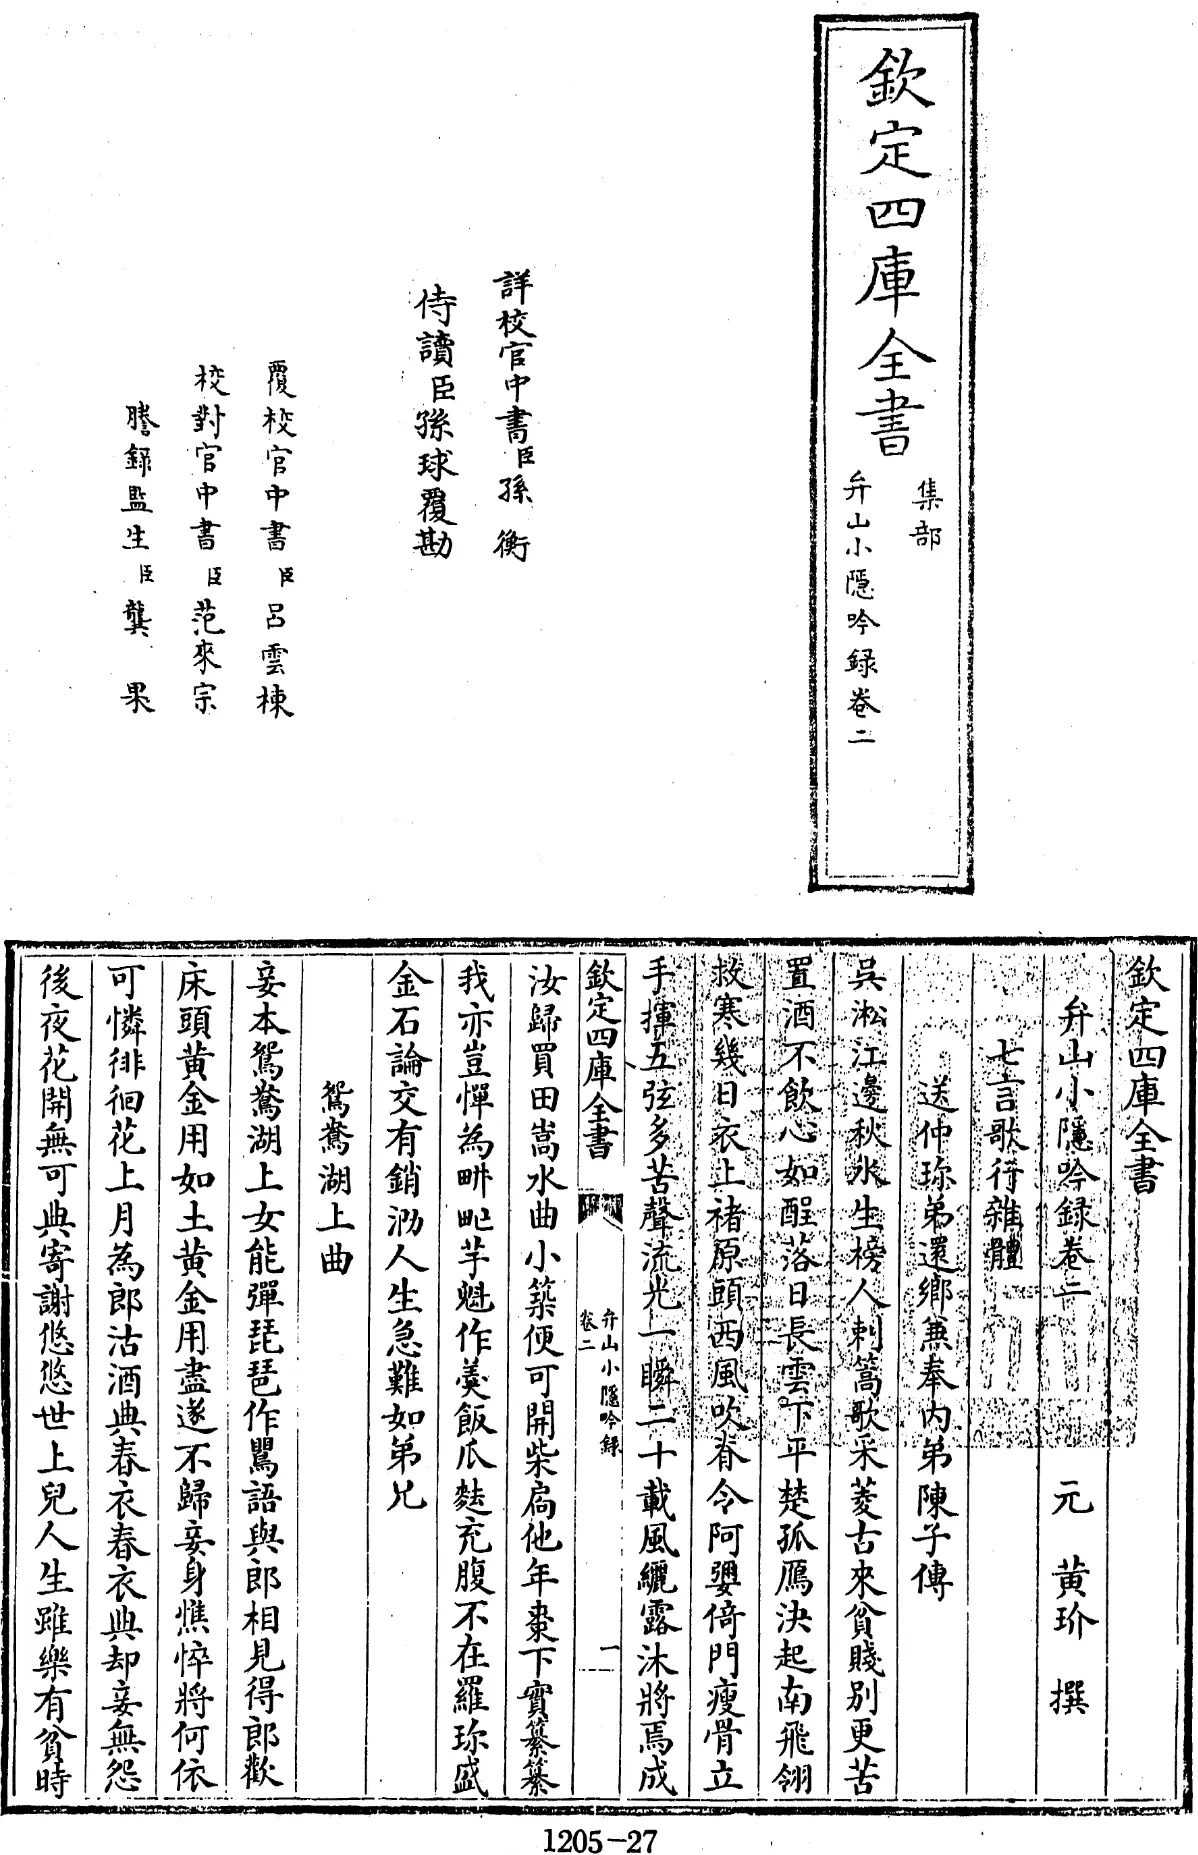 欽定四庫全書
集部
弁山小隱吟録卷二
詳校官中書臣孫衡
侍讀臣孫球覆勘
覆校官中書臣呂雲棟
校對官中書臣范來宗
謄錄監生臣龔果
欽定四庫全書
弁山小隱吟録卷二
元 黄玠 撰
七言歌行雜體
送仲珍弟還鄉兼奉内弟陳子傳
吳淞江邊秋水生榜人刺篙歌采菱古來貧賤别更苦
置酒不飲心如酲落日長雲下平楚孤鴈決起南飛翎
救寒幾日衣止褚原頭西風吹脊令阿㜲倚門瘦骨立
手揮五弦多苦聲流光一瞬二十載風纚露沐將焉成
欽定四庫全書
弁山小隱吟録
卷二
一
汝歸買田嵩水曲小築便可開柴扃他年棗下實纂纂
我亦豈憚為畊甿芋魁作羮飯瓜麮充腹不在羅珍盛
金石論交有銷泐人生急難如弟兄
鴛鴦湖上曲
妾本鴛鴦湖上女能彈琵琶作鸎語與郎相見得郎歡
床頭黄金用如土黄金用盡遂不歸妾身憔悴將何依
可憐徘徊花上月為郎沽酒典春衣春衣典却妾無怨
後夜花開無可典寄謝悠悠世上兒人生雖樂有貧時
1205-27